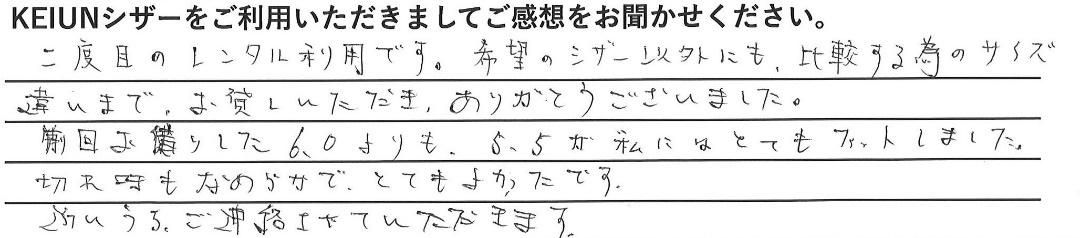 KEIUNシザーをご利用いただきましてご感想をお聞かせください。
二度目のレンタル利用です。希望のシザー以外にも、比較する為のサイズ
違いまで、お貸しいただき、ありがとうございました。
前回お借りした6.0よりも、5.5が私にはとてもフィットしました。
切れ時もなめらかで、とてもよかったです。
ご連絡させていただきます。